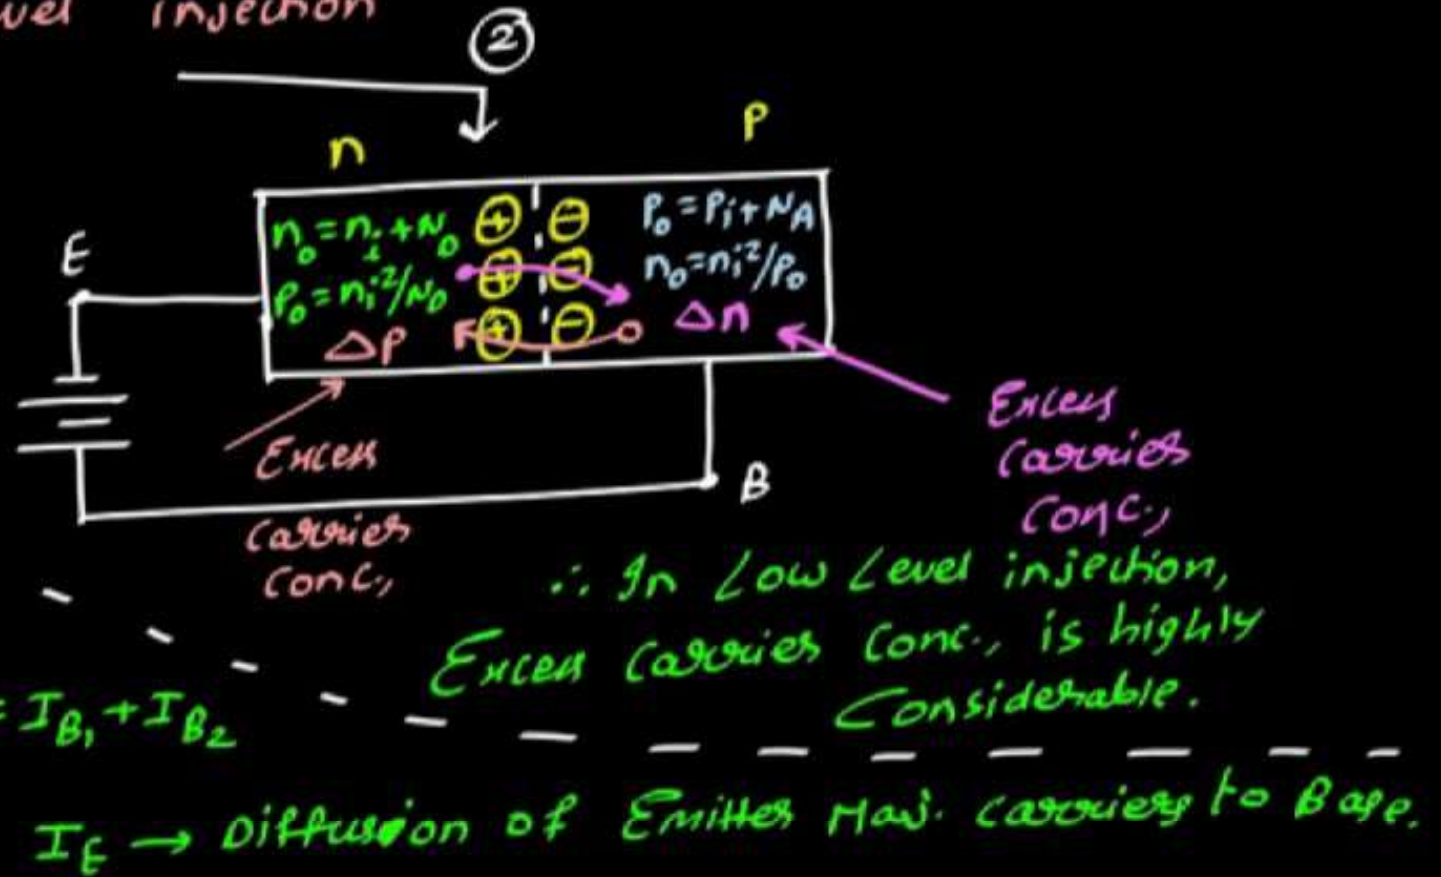 injection
②
n
P
n₀ = nᵢ + N_D
P₀ = nᵢ²/N_D
ΔP
⊕ ⊖
⊕ ⊖
⊕ ⊖
P₀ = Pᵢ + N_A
n₀ = nᵢ²/P₀
Δn
E
B
Excess
Carries
Conc.,
Excess
Carries
Conc.,
∴ In Low Level injection,
Excess Carries Conc., is highly
Considerable.
= I_B₁ + I_B₂
I_E → Diffusion of Emitter Maj. carriers to Base.